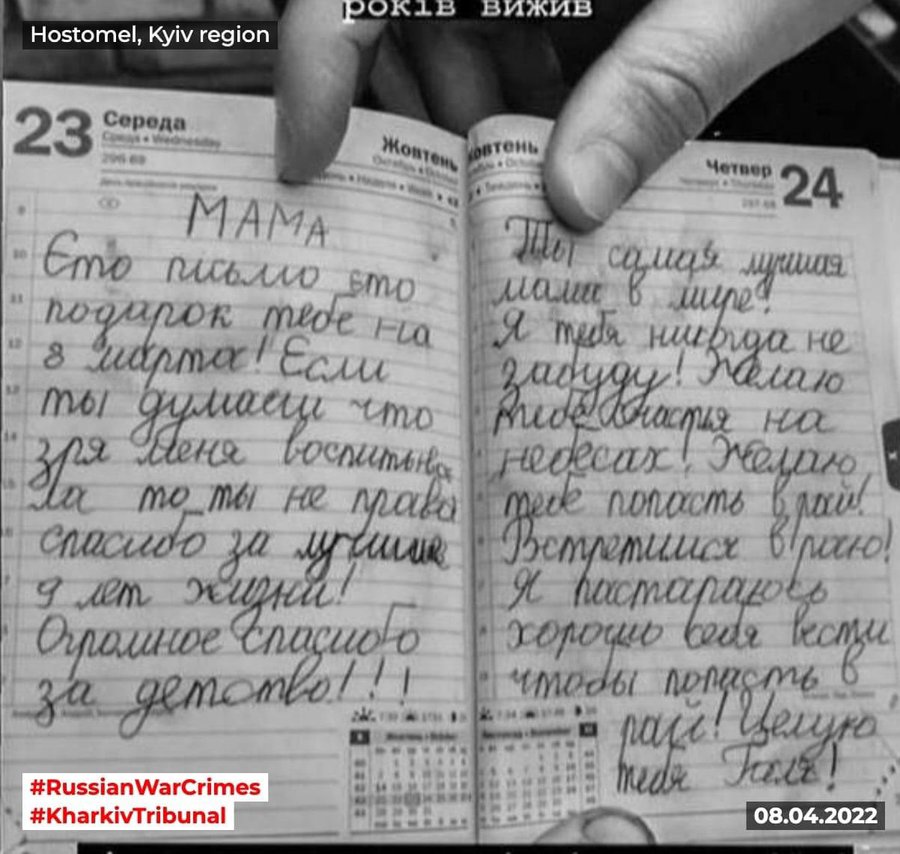 років вижив
Hostomel, Kyiv region
23 Середа
Среда • Wednesday
296-69
Жовтень
МАМА
Єто письмо єто
подарок тебе на
8 марта! Если
ты думаеш что
зря меня воспитыва
ла то ты не права
спасибо за лучшие
9 лет жизни!
Огромное спасибо
за детство!!!
Жовтень
Четвер 24
297-68
Ты самая лучшая
мама в мире!
Я тебя никогда не
забуду! Желаю
тебе счастья на
небесах! Желаю
тебе попасть в рай!
Встретимся в раю!
Я постараюсь
хорошо себя вести
чтобы попасть в
рай! Целую
тебя Галя!
#RussianWarCrimes
#KharkivTribunal
08.04.2022